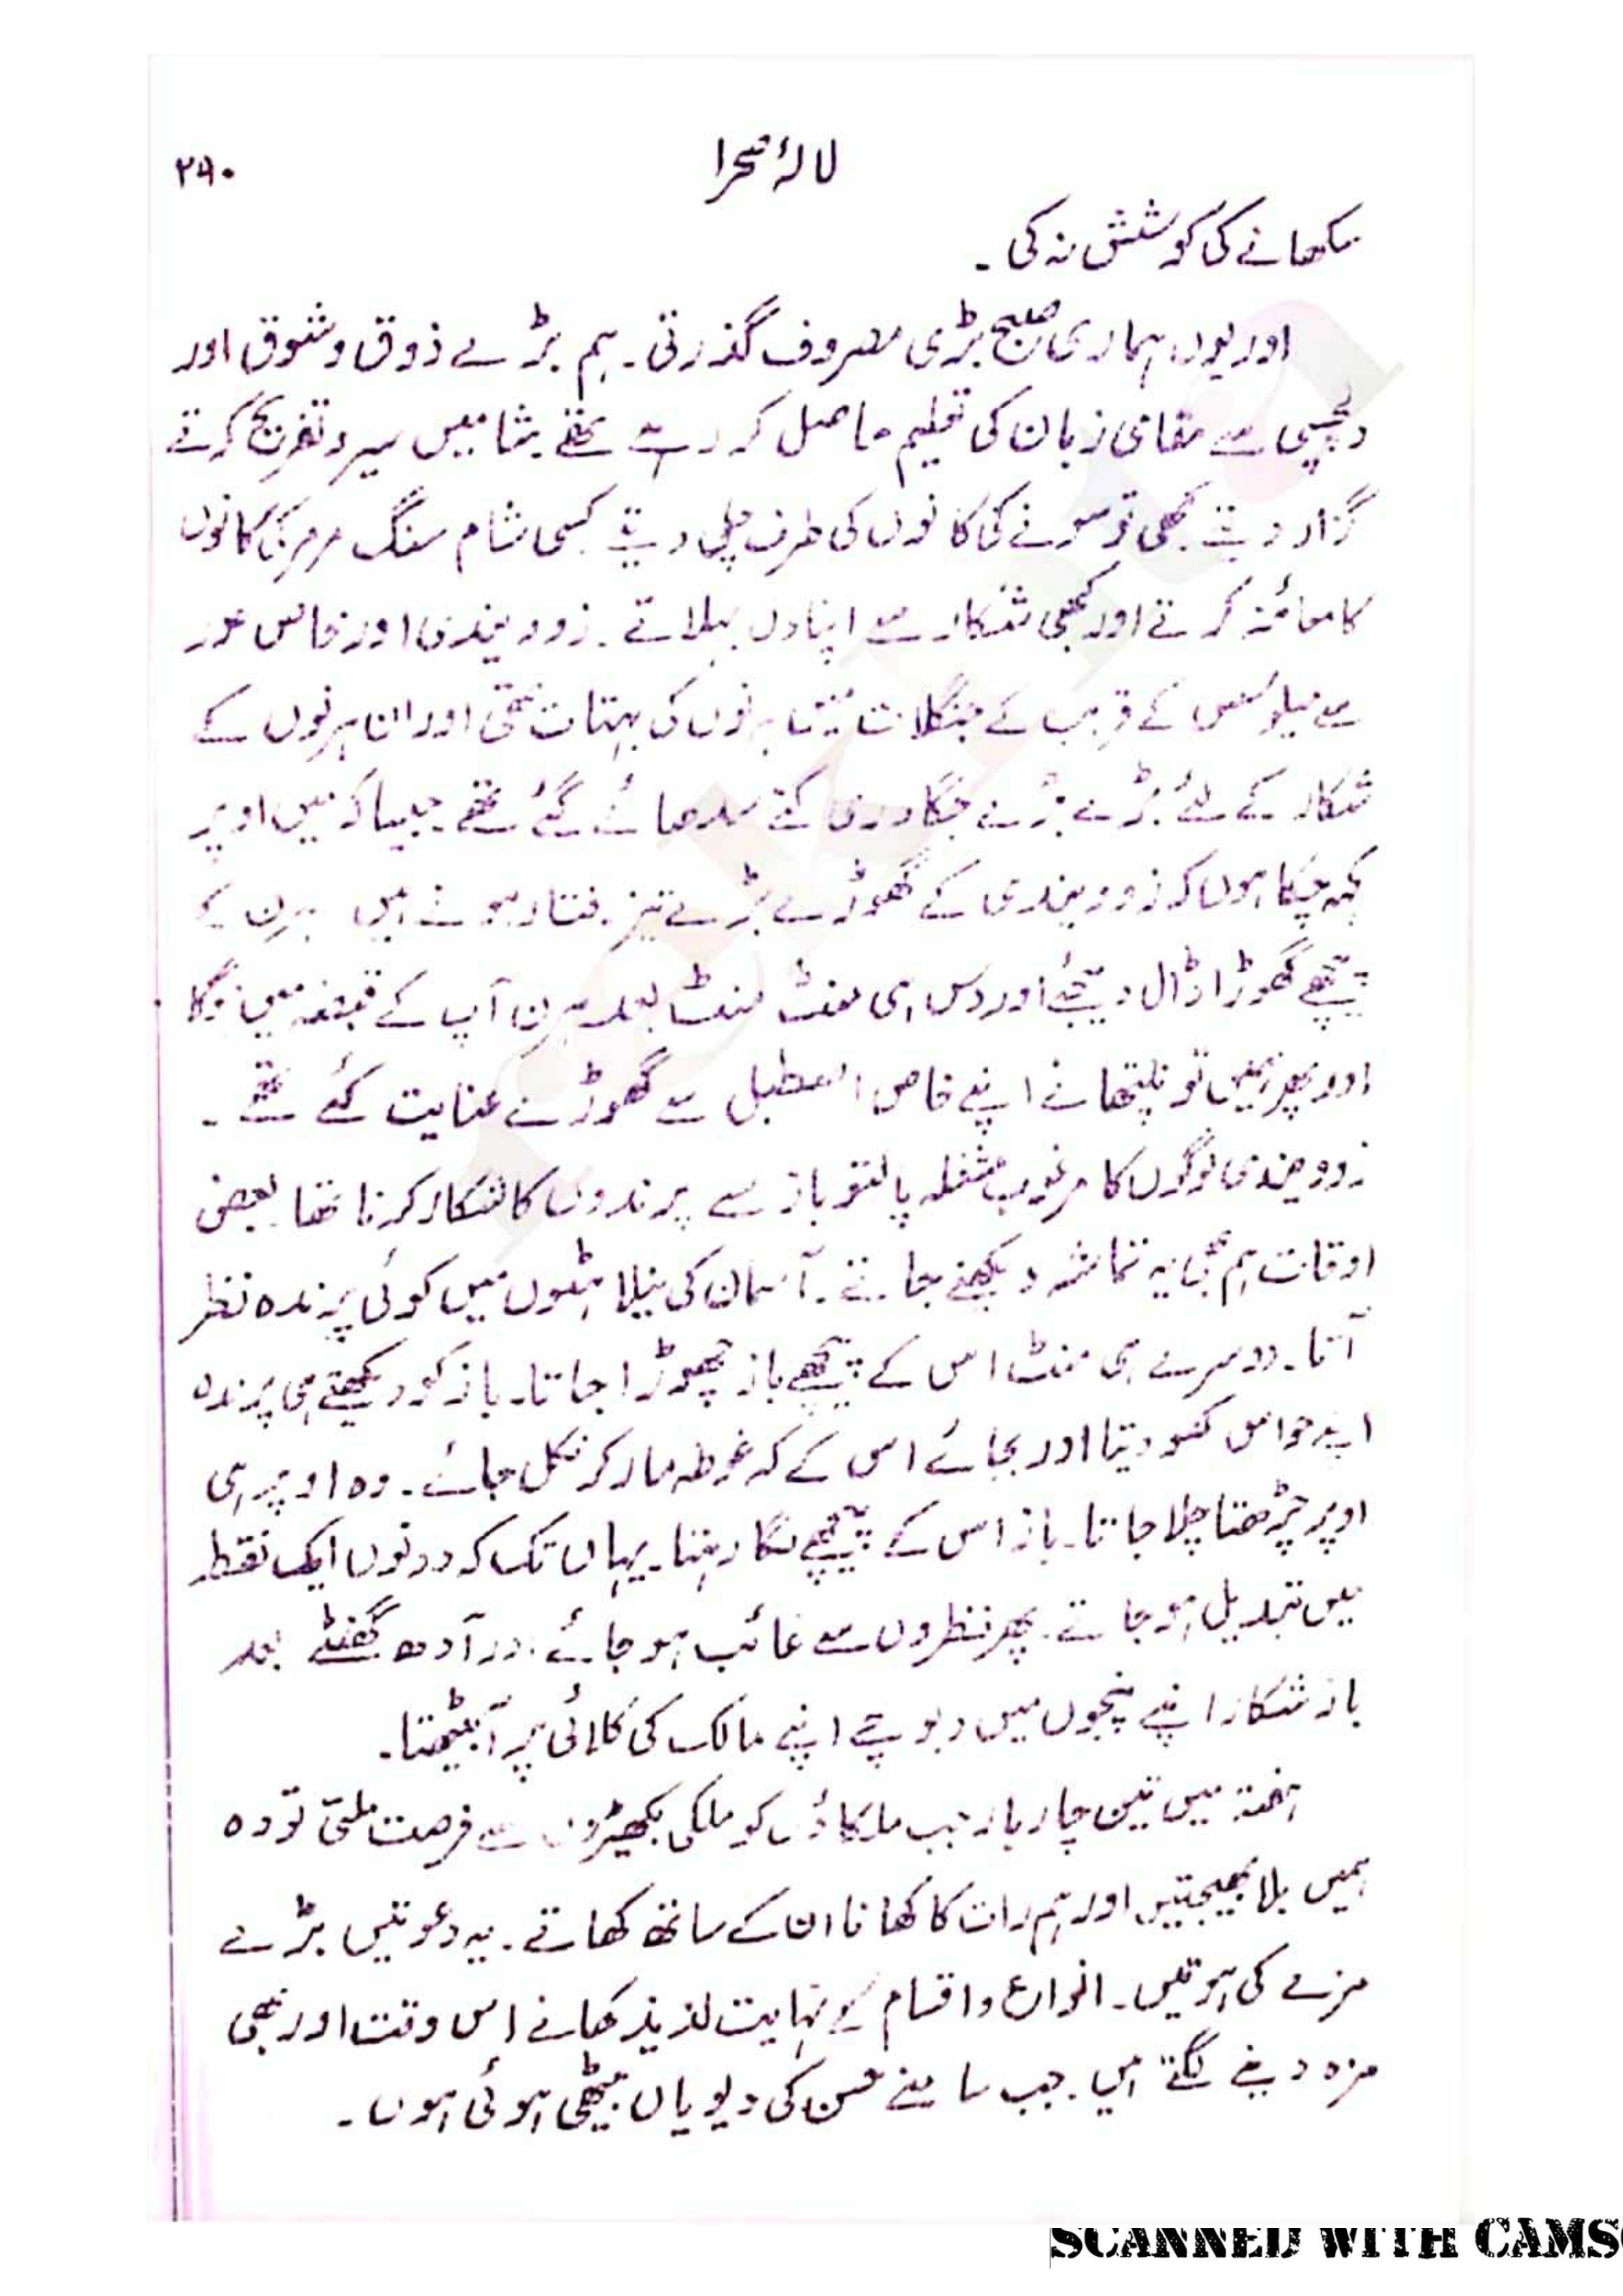 لالۂ صحرا
۲۹۰
سکھانے کی کوشش نہ کی ۔
اور یوں ہماری صبح بڑی مصروف گذرتی ۔ ہم بڑے ذوق و شوق اور
دلچسپی سے مقامی زبان کی تعلیم حاصل کر رہے تھے ۔ شامیں سیر و تفریح کرتے
گزار دیتے کبھی تو سونے کی کانوں کی طرف چل دیتے کسی شام سنگ مرمر کی کانوں
کا معائنہ کرتے اور کبھی شکار سے اپنا دل بہلاتے ۔ زوویندی اور خاص طور
سے میلوسس کے قریب کے جنگلات میں ہرنوں کی بہتات تھی اور ان ہرنوں کے
شکار کے لئے بڑے بڑے جنگادری کتے سدھائے گئے تھے ۔ جیسا کہ میں اوپر
کہہ چکا ہوں کہ زوویندی کے گھوڑے بڑے تیز رفتار ہوتے ہیں ہرن کے
پیچھے گھوڑا ڈال دیجئے اور دس ہی منٹ منٹ بعد ہرن آپ کے قبضہ میں ہوگا
اور پھر ہمیں تو نلپتھا نے اپنے خاص اصطبل سے گھوڑے عنایت کئے تھے ۔
زوویندی لوگوں کا مرغوب مشغلہ پالتو باز سے پرندوں کا شکار کرنا تھا ۔ بعض
اوقات ہم بھی یہ تماشہ دیکھنے جاتے ۔ آسمان کی نیلاہٹوں میں کوئی پرندہ نظر
آتا ۔ دوسرے ہی منٹ اس کے پیچھے باز چھوڑا جاتا ۔ باز کو دیکھتے ہی پرندہ
اپنے حواس کھو دیتا اور بجائے اس کے کہ غوطہ مار کر نکل جائے ۔ وہ اوپر ہی
اوپر چڑھتا چلا جاتا ۔ باز اس کے پیچھے لگا رہتا ۔ یہاں تک کہ دونوں ایک نقطہ
میں تبدیل ہو جاتے ۔ پھر نظروں سے غائب ہو جاتے ۔ اور آدھ گھنٹے بعد
باز شکار اپنے پنجوں میں دبوچے اپنے مالک کی کلائی پر آ بیٹھتا ۔
ہفتہ میں تین چار بار جب ملکاؤں کو ملکی بکھیڑوں سے فرصت ملتی تو وہ
ہمیں بلا بھیجتیں اور ہم رات کا کھانا ان کے ساتھ کھاتے ۔ یہ دعوتیں بڑے
مزے کی ہوتیں ۔ انواع و اقسام کے نہایت لذیذ کھانے اس وقت اور بھی
مزہ دینے لگتے ہیں ۔ جب سامنے حسن کی دیویاں بیٹھی ہوئی ہوں ۔
SCANNED WITH CAMS